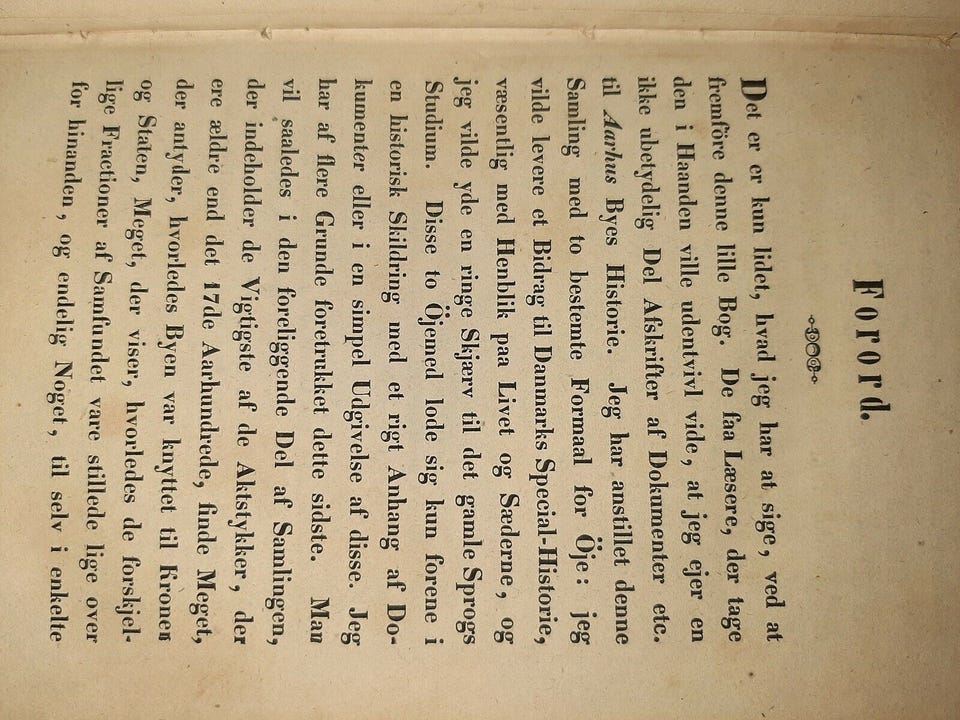 Forord.
Det er er kun lidet, hvad jeg har at sige, ved at
fremföre denne lille Bog. De faa Læsere, der tage
den i Haanden ville udentvivl vide, at jeg ejer en
ikke ubetydelig Del Afskrifter af Dokumenter etc.
til Aarhus Byes Historie. Jeg har anstillet denne
Samling med to bestemte Formaal for Öje: jeg
vilde levere et Bidrag til Danmarks Special-Historie,
væsentlig med Henblik paa Livet og Sæderne, og
jeg vilde yde en ringe Skjærv til det gamle Sprogs
Studium. Disse to Öjemed lode sig kun forene i
en historisk Skildring med et rigt Anhang af Do-
kumenter eller i en simpel Udgivelse af disse. Jeg
har af flere Grunde foretrukket dette sidste. Man
vil saaledes i den foreliggende Del af Samlingen,
der indeholder de Vigtigste af de Aktstykker, der
ere ældre end det 17de Aarhundrede, finde Meget,
der antyder, hvorledes Byen var knyttet til Kronen
og Staten, Meget, der viser, hvorledes de forskjel-
lige Fractioner af Samfundet vare stillede lige over
for hinanden, og endelig Noget, til selv i enkelte